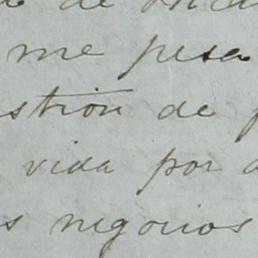 de
me pesa
stión de p
vida por
s negocios